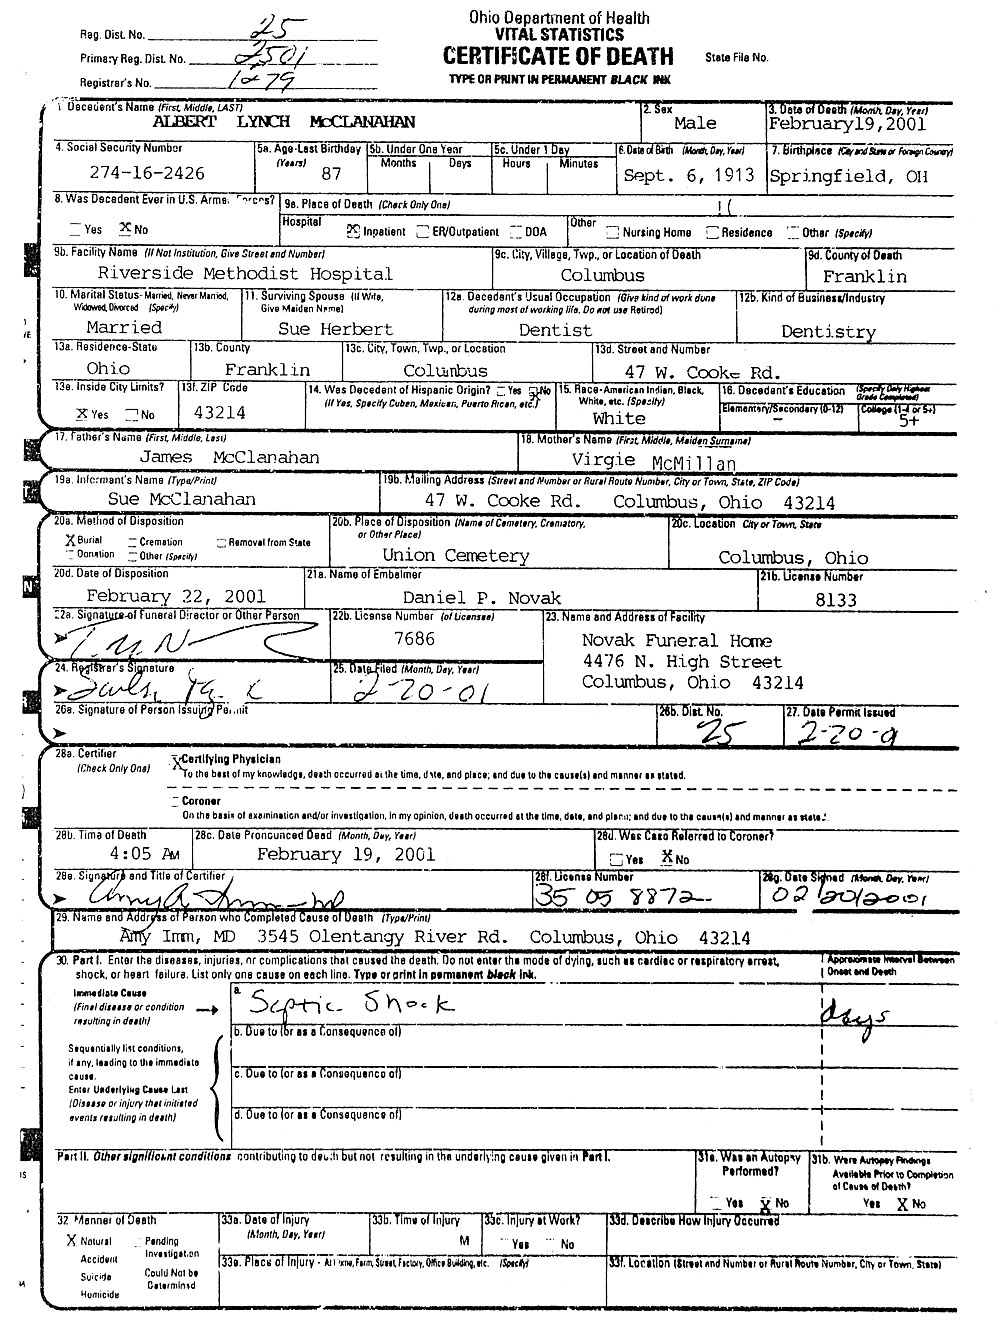 Ohio Department of Health
Reg. Dist. No. 25
VITAL STATISTICS
Primary Reg. Dist. No. 2501
CERTIFICATE OF DEATH
State File No.
Registrar's No. 1279
TYPE OR PRINT IN PERMANENT BLACK INK
1. Decedent's Name (First, Middle, LAST) 2. Sex 3. Date of Death (Month, Day, Year)
ALBERT LYNCH McCLANAHAN Male February 19, 2001
4. Social Security Number 5a. Age-Last Birthday (Years) 5b. Under One Year Months Days 5c. Under 1 Day Hours Minutes 6. Date of Birth (Month, Day, Year) 7. Birthplace (City and State or Foreign Country)
274-16-2426 87 Sept. 6, 1913 Springfield, OH
8. Was Decedent Ever in U.S. Armed Forces? 9a. Place of Death (Check Only One)
Yes X No Hospital X Inpatient ER/Outpatient DOA Other Nursing Home Residence Other (Specify)
9b. Facility Name (If Not Institution, Give Street and Number) 9c. City, Village, Twp., or Location of Death 9d. County of Death
Riverside Methodist Hospital Columbus Franklin
10. Marital Status-Married, Never Married, Widowed, Divorced (Specify) 11. Surviving Spouse (If Wife, Give Maiden Name) 12a. Decedent's Usual Occupation (Give kind of work done during most of working life. Do not use Retired) 12b. Kind of Business/Industry
Married Sue Herbert Dentist Dentistry
13a. Residence-State 13b. County 13c. City, Town, Twp., or Location 13d. Street and Number
Ohio Franklin Columbus 47 W. Cooke Rd.
13e. Inside City Limits? 13f. ZIP Code 14. Was Decedent of Hispanic Origin? Yes X No (If Yes, Specify Cuban, Mexican, Puerto Rican, etc.) 15. Race-American Indian, Black, White, etc. (Specify) 16. Decedent's Education (Specify Only Highest Grade Completed)
Elementary/Secondary (0-12) College (1-4 or 5+)
X Yes No 43214 White - 5+
17. Father's Name (First, Middle, Last) 18. Mother's Name (First, Middle, Maiden Surname)
James McClanahan Virgie McMillan
19a. Informant's Name (Type/Print) 19b. Mailing Address (Street and Number or Rural Route Number, City or Town, State, ZIP Code)
Sue McClanahan 47 W. Cooke Rd. Columbus, Ohio 43214
20a. Method of Disposition 20b. Place of Disposition (Name of Cemetery, Crematory, or Other Place) 20c. Location City or Town, State
X Burial Cremation Removal from State
Donation Other (Specify) Union Cemetery Columbus, Ohio
20d. Date of Disposition 21a. Name of Embalmer 21b. License Number
February 22, 2001 Daniel P. Novak 8133
22a. Signature of Funeral Director or Other Person 22b. License Number (of Licensee) 23. Name and Address of Facility
7686 Novak Funeral Home
4476 N. High Street
24. Registrar's Signature 25. Date Filed (Month, Day, Year) Columbus, Ohio 43214
2-20-01
26a. Signature of Person Issuing Permit 26b. Dist. No. 27. Date Permit Issued
25 2-20-01
28a. Certifier (Check Only One) X Certifying Physician
To the best of my knowledge, death occurred at the time, date, and place; and due to the cause(s) and manner as stated.
Coroner
On the basis of examination and/or investigation, in my opinion, death occurred at the time, date, and place; and due to the cause(s) and manner as stated.
28b. Time of Death 28c. Date Pronounced Dead (Month, Day, Year) 28d. Was Case Referred to Coroner?
4:05 AM February 19, 2001 Yes X No
28e. Signature and Title of Certifier 28f. License Number 28g. Date Signed (Month, Day, Year)
35 05 8872 02/20/2001
29. Name and Address of Person who Completed Cause of Death (Type/Print)
Amy Imm, MD 3545 Olentangy River Rd. Columbus, Ohio 43214
30. Part I. Enter the diseases, injuries, or complications that caused the death. Do not enter the mode of dying, such as cardiac or respiratory arrest, shock, or heart failure. List only one cause on each line. Type or print in permanent black ink. Approximate Interval Between Onset and Death
Immediate Cause (Final disease or condition resulting in death) a. Septic Shock days
b. Due to (or as a Consequence of)
Sequentially list conditions, if any, leading to the immediate cause. Enter Underlying Cause Last (Disease or injury that initiated events resulting in death)
c. Due to (or as a Consequence of)
d. Due to (or as a Consequence of)
Part II. Other significant conditions contributing to death but not resulting in the underlying cause given in Part I. 31a. Was an Autopsy Performed? 31b. Were Autopsy Findings Available Prior to Completion of Cause of Death?
Yes X No Yes X No
32 Manner of Death 33a. Date of Injury (Month, Day, Year) 33b. Time of Injury M 33c. Injury at Work? Yes No 33d. Describe How Injury Occurred
X Natural Pending Investigation
Accident
Suicide Could Not be Determined
Homicide
33e. Place of Injury - At Home, Farm, Street, Factory, Office Building, etc. (Specify) 33f. Location (Street and Number or Rural Route Number, City or Town, State)